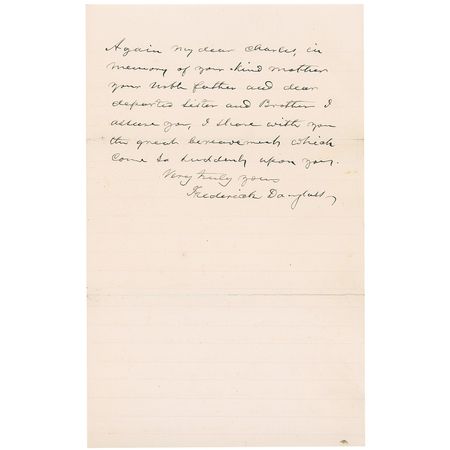 Again My dear Charles, in
memory of your kind mother
your Noble father and dear
departed Sister and Brother I
assure you, I share with you
this great bereavement which
come so suddenly upon you.
Very truly yours
Frederick Douglass